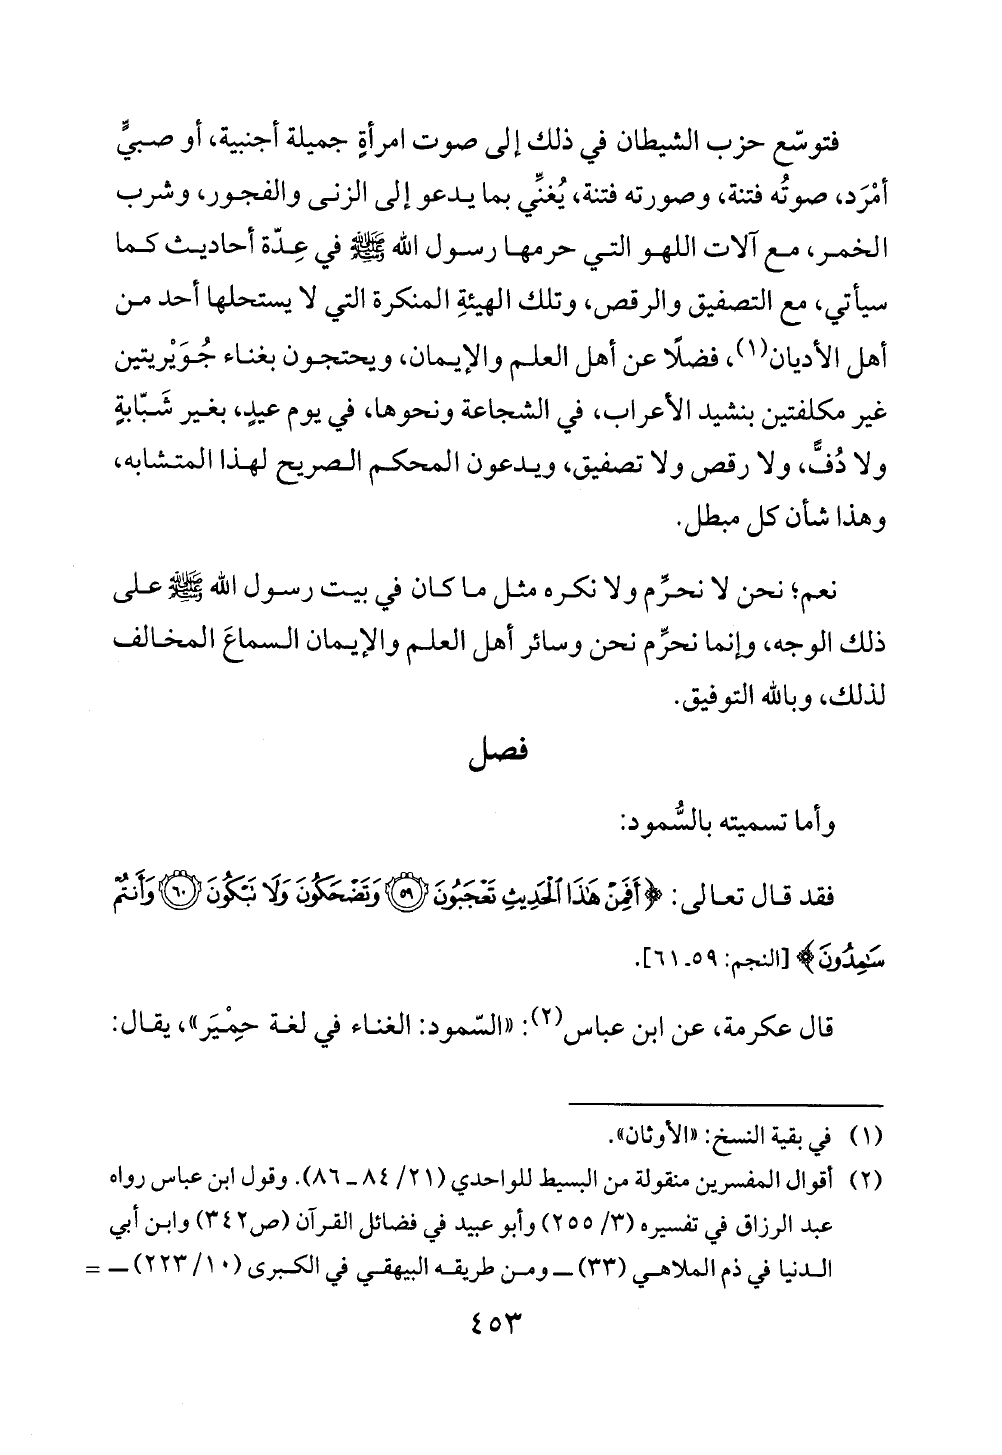 فتوسّع حزب الشيطان في ذلك إلى صوت امرأةٍ جميلة أجنبية، أو صبيٍّ
أمْرَد، صوتُه فتنة، وصورته فتنة، يُغنِّي بما يدعو إلى الزنى والفجور، وشرب
الخمر، مع آلات اللهو التي حرمها رسول الله ﷺ في عِدّة أحاديث كما
سيأتي، مع التصفيق والرقص، وتلك الهيئةِ المنكرة التي لا يستحلها أحد من
أهل الأديان(١)، فضلًا عن أهل العلم والإيمان، ويحتجون بغناء جُوَيْريتين
غير مكلفتين بنشيد الأعراب، في الشجاعة ونحوها، في يوم عيدٍ، بغير شَبّابةٍ
ولا دُفٍّ، ولا رقص ولا تصفيق، ويدعون المحكم الصريح لهذا المتشابه،
وهذا شأن كل مبطل.
نعم؛ نحن لا نحرِّم ولا نكره مثل ما كان في بيت رسول الله ﷺ على
ذلك الوجه، وإنما نحرِّم نحن وسائر أهل العلم والإيمان السماعَ المخالف
لذلك، وبالله التوفيق.
فصل
وأما تسميته بالسُّمود:
فقد قال تعالى: ﴿أَفَمِنْ هَٰذَا الْحَدِيثِ تَعْجَبُونَ ٥٩ وَتَضْحَكُونَ وَلَا تَبْكُونَ ٦٠ وَأَنتُمْ
سَٰمِدُونَ﴾ [النجم: ٥٩ـ ٦١].
قال عكرمة، عن ابن عباس(٢): «السّمود: الغناء في لغة حِمْيَر»، يقال:
(١) في بقية النسخ: «الأوثان».
(٢) أقوال المفسرين منقولة من البسيط للواحدي (٢١/ ٨٤ ـ ٨٦). وقول ابن عباس رواه
عبد الرزاق في تفسيره (٣/ ٢٥٥) وأبو عبيد في فضائل القرآن (ص٣٤٢) وابن أبي
الدنيا في ذم الملاهي (٣٣) ـ ومن طريقه البيهقي في الكبرى (١٠/ ٢٢٣) ـ =
٤٥٣